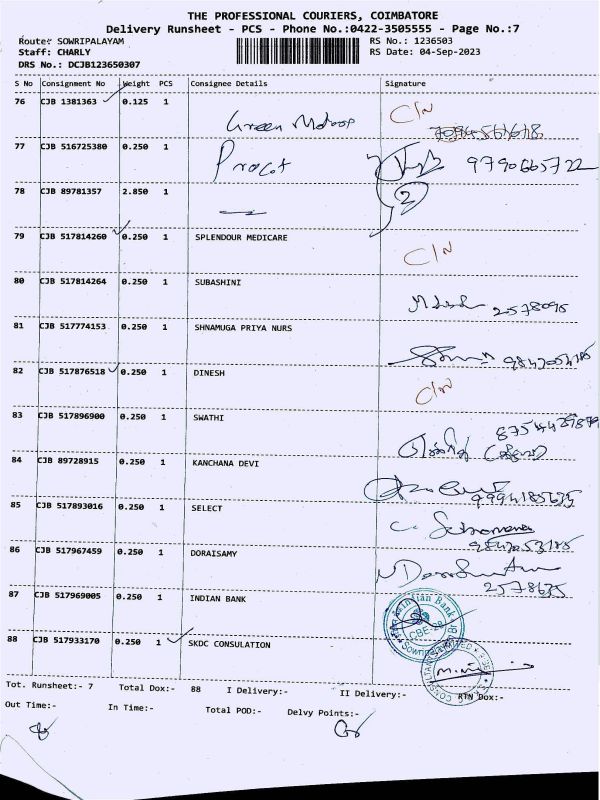 THE PROFESSIONAL COURIERS, COIMBATORE
Delivery Runsheet - PCS - Phone No.:0422-3505555 - Page No.:7
Route: SOWRIPALAYAM RS No.: 1236503
Staff: CHARLY RS Date: 04-Sep-2023
DRS No.: DCJB123650307
S No Consignment No Weight PCS Consignee Details Signature
76 CJB 1381363 0.125 1 Green C/N
77 CJB 516725380 0.250 1 Procot 9790665722
78 CJB 89781357 2.850 1 2
79 CJB 517814260 0.250 1 SPLENDOUR MEDICARE C/N
80 CJB 517814264 0.250 1 SUBASHINI 2578095
81 CJB 517774153 0.250 1 SHNAMUGA PRIYA NURS
82 CJB 517876518 0.250 1 DINESH C/N
83 CJB 517896900 0.250 1 SWATHI
84 CJB 89728915 0.250 1 KANCHANA DEVI 9994185635
85 CJB 517893016 0.250 1 SELECT
86 CJB 517967459 0.250 1 DORAISAMY 2578635
87 CJB 517969005 0.250 1 INDIAN BANK Indian Bank CBE-28
88 CJB 517933170 0.250 1 SKDC CONSULATION
Tot. Runsheet:- 7 Total Dox:- 88 I Delivery:- II Delivery:- RTN Dox:-
Out Time:- In Time:- Total POD:- Delvy Points:-